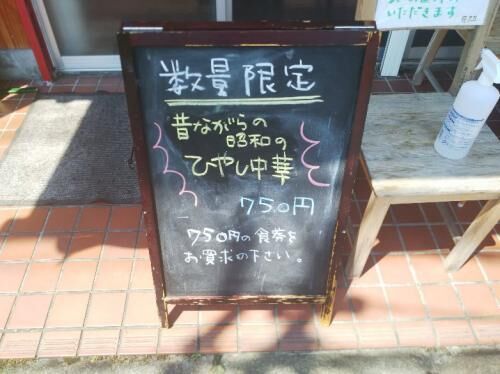 いただきます
数量限定
昔ながらの
昭和の
ひやし中華
750円
750円の食券を
お買求め下さい。